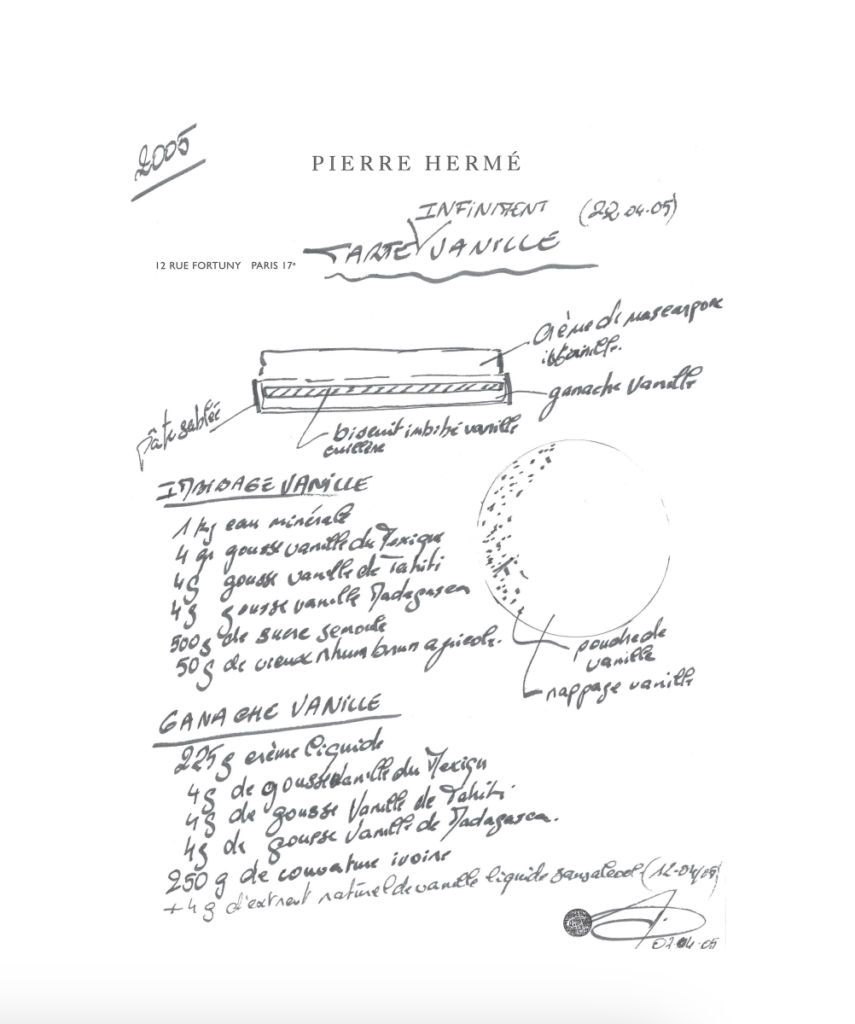 2005
PIERRE HERMÉ
INFINIMENT (22.04.05)
12 RUE FORTUNY PARIS 17e
TARTE VANILLE
Crème de mascarpone
vanille.
ganache vanille
pâte sablée
biscuit imbibé vanille
cuillère
IMBIBAGE VANILLE
1 kg eau minérale
4 gr gousse vanille du Mexique
4g gousse vanille de Tahiti
4g gousse vanille Madagascar
500g de sucre semoule
50g de vieux rhum brun agricole.
poudre de
vanille
nappage vanille
GANACHE VANILLE
225g crème liquide
4g de gousse vanille du Mexique
4g de gousse vanille de Tahiti.
4g de gousse vanille de Madagascar.
250g de couverture ivoire
+ 4g d'extrait naturel de vanille liquide sans alcool (12-04/05)
02.04.05